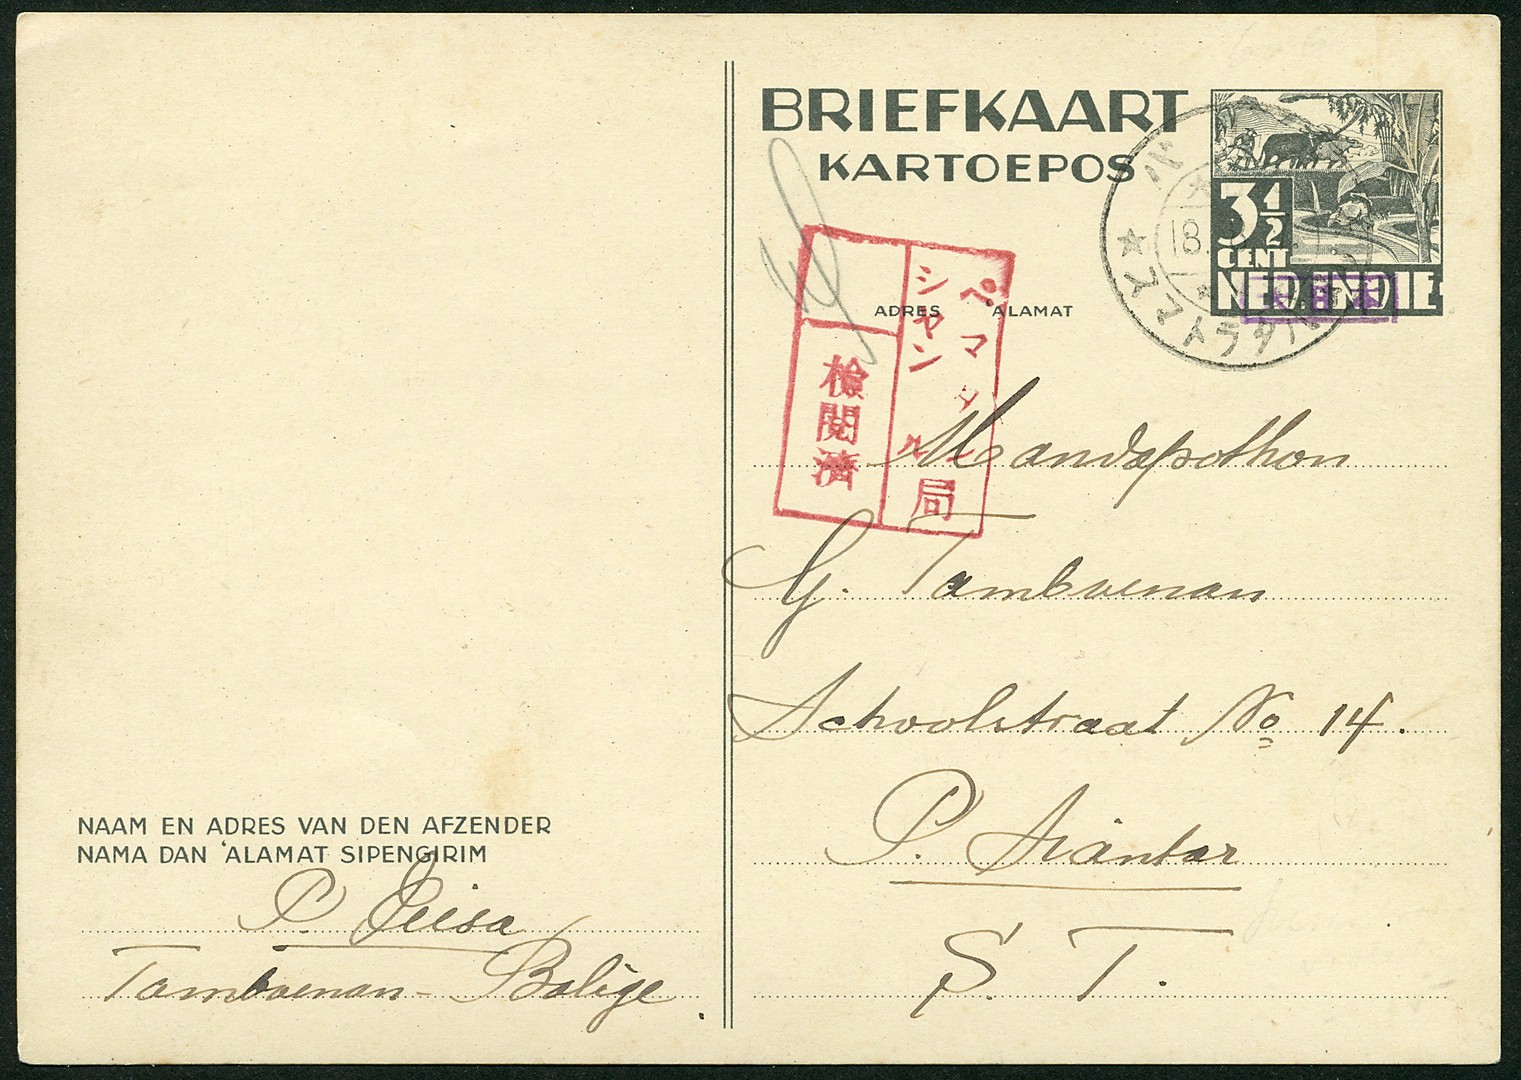 BRIEFKAART
KARTOEPOS
3 1/2
CENT
NED. INDIE
18.
スマトラタパヌリ
ADRES ALAMAT
ペマタン
シヤンタル局
検閲済
Mandapothon
G. Tamboenan
Schoolstraat No 14.
P. Siantar
S. T.
NAAM EN ADRES VAN DEN AFZENDER
NAMA DAN 'ALAMAT SIPENGIRIM
P.
Tamboenan - Balige.